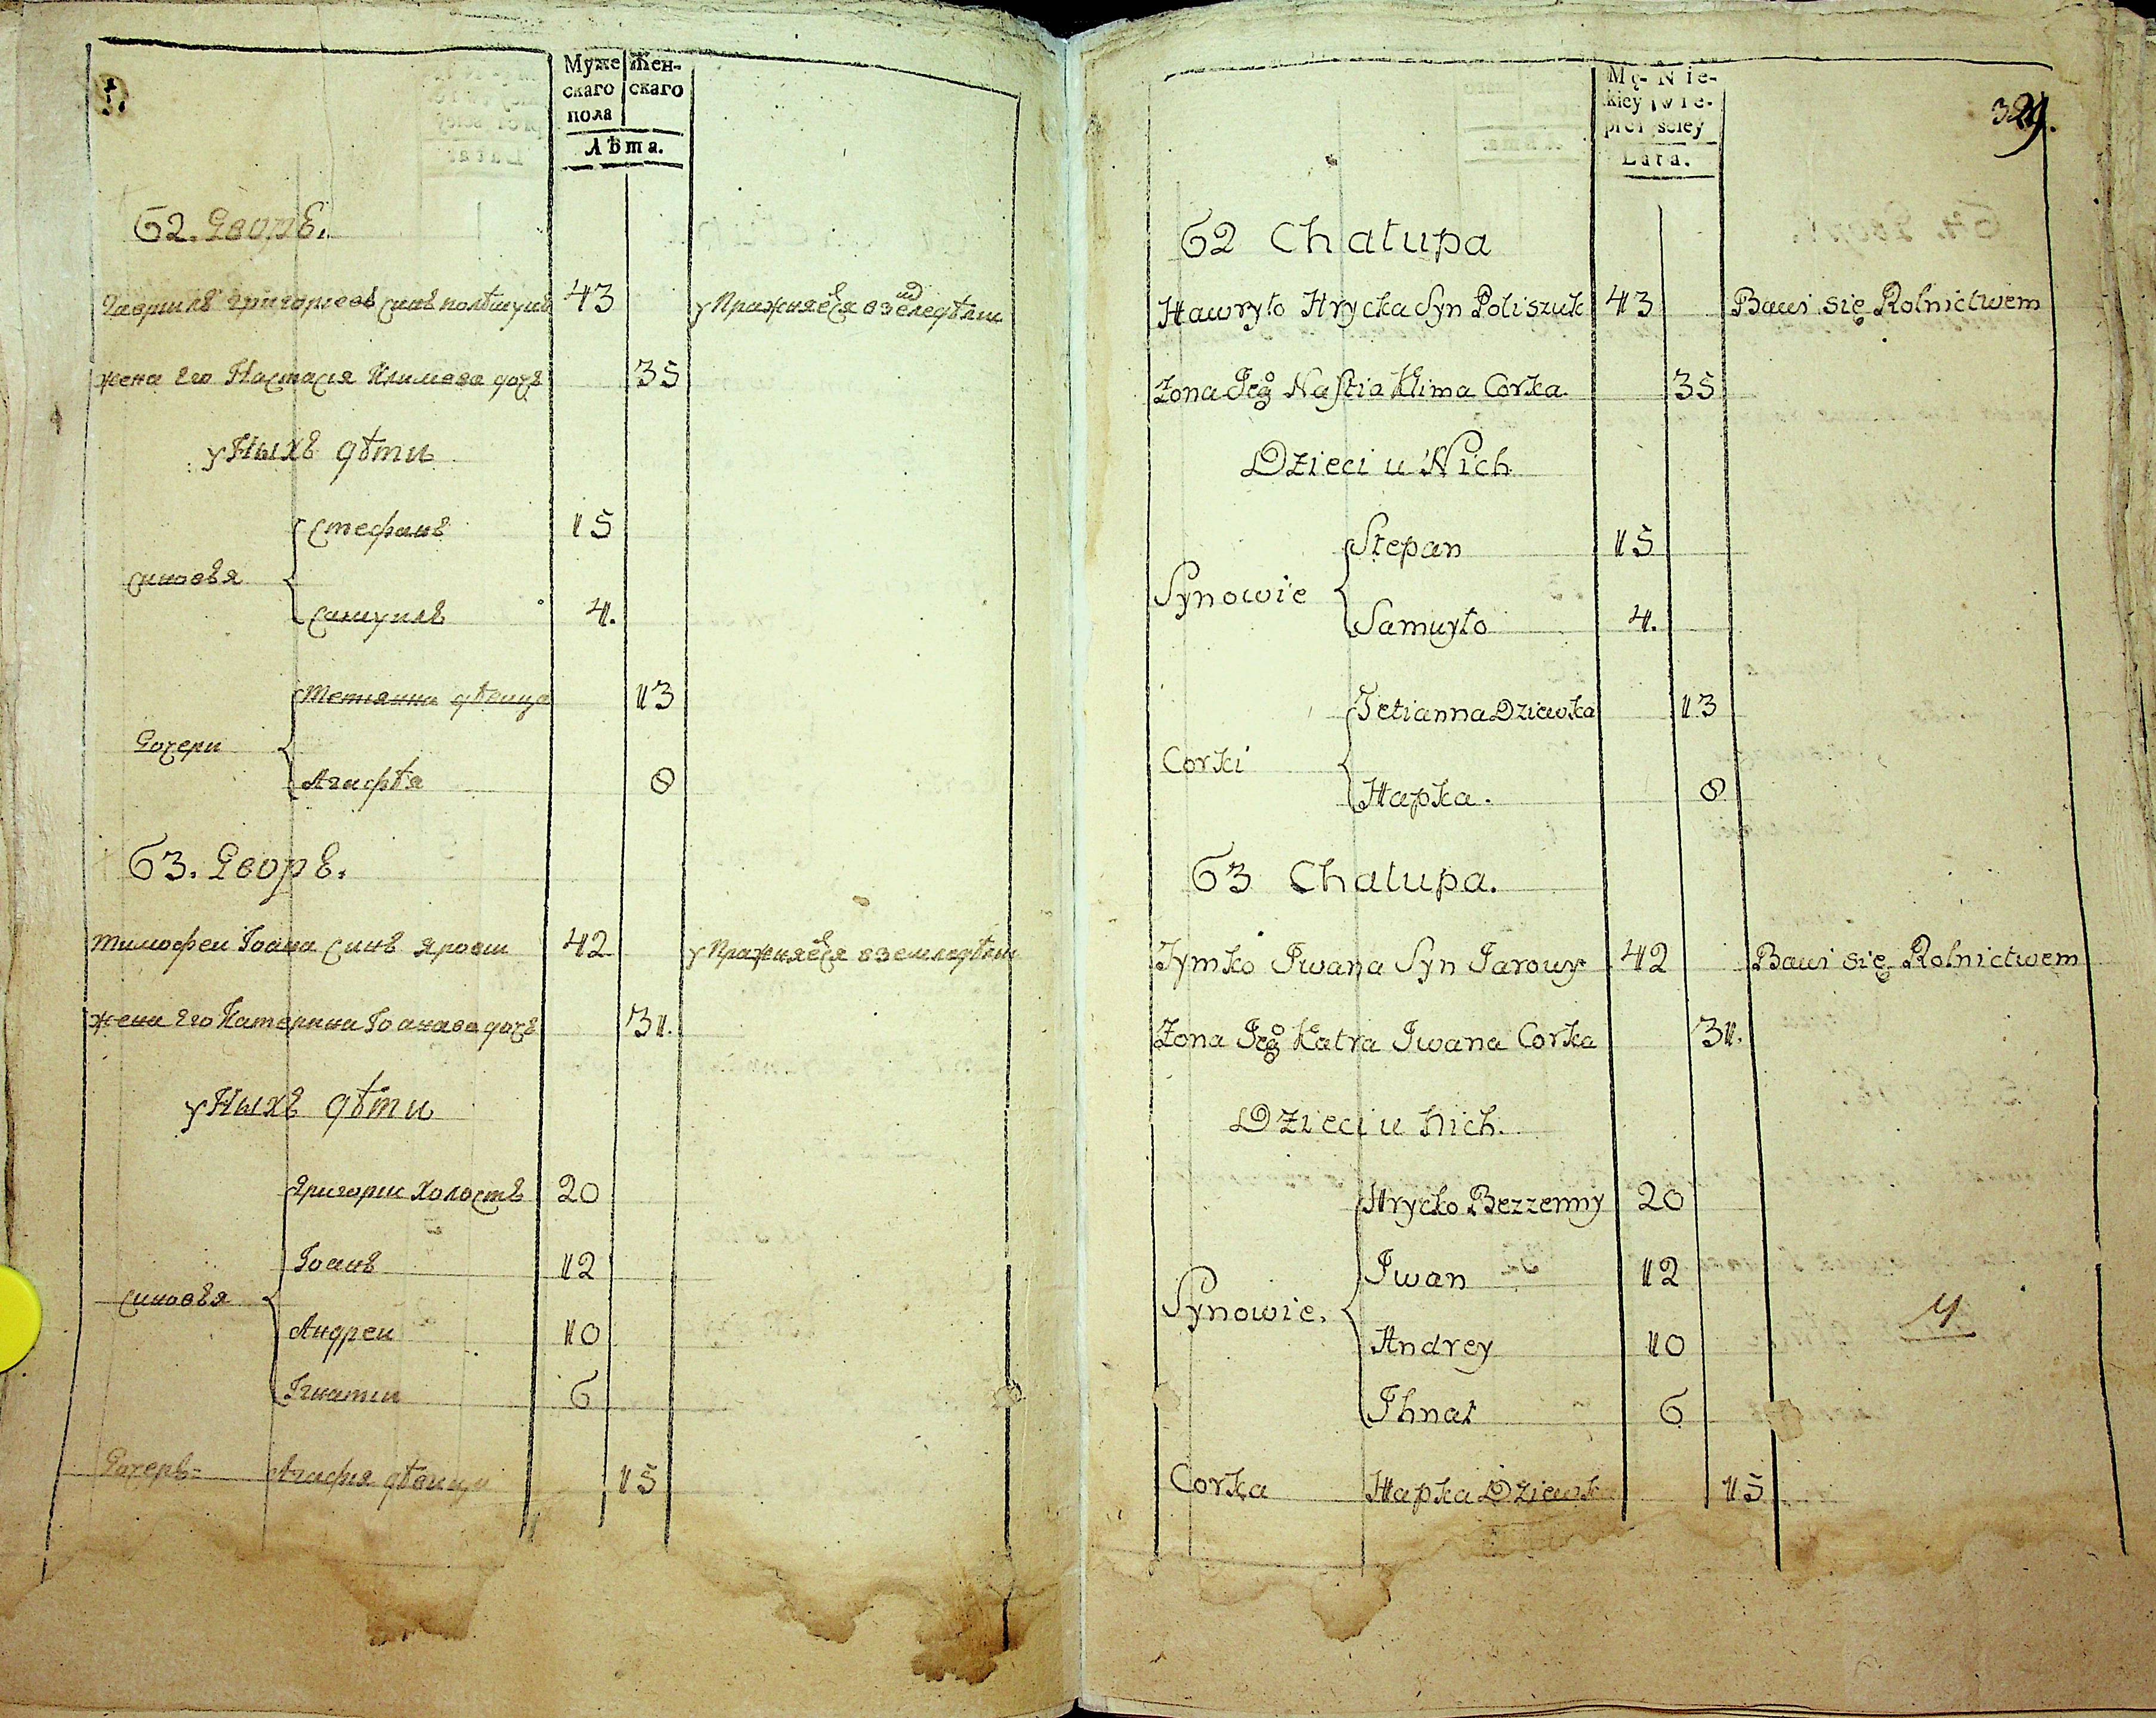 Муже Жен-
скаго скаго
пола
Лѣта.
62. Дворъ.
Гавриль Григориевъ синъ полѣшукъ 43 упражняется в земледѣлии
жена Его Настасия Климова дочъ 35
у Ныхъ дѣти
синовъя
Стефанъ 15
Самуилъ 4.
Дочери
Тетянна дѣвица 13
Агафѣя 8
63. Дворъ.
Тимофеи Іоана синъ Ярови 42 упражняется в земледѣлии
жена Его Катерина Іоанова дочъ 31.
у Ныхъ дѣти
синовъя
Григории Холостъ 20
Іоанъ 12
Андреи 10
Игнатии 6
Дочеръ= Агафия дѣвица 15
Mę- Nie-
kiey wie-
płci sciey
Lata.
329.
62 Chałupa
Hawryło Hrycka Syn Poliszuk 43 Bawi się Rolnictwem
Zona Jego Nastia Klima Corka 35
Dzieci u Nich
Synowie
Stepan 15
Samuyło 4.
Corki
Tetianna Dziewka 13
Hapka. 8
63 Chałupa.
Tymko Iwana Syn Jarowy 42 Bawi się Rolnictwem
Zona Jego Katra Iwana Corka 31.
Dzieci u Nich.
Synowie.
Hrycko Bezzenny 20
Iwan 12
Andrey 10
Ihnat 6
Corka Hapka Dziewk 15